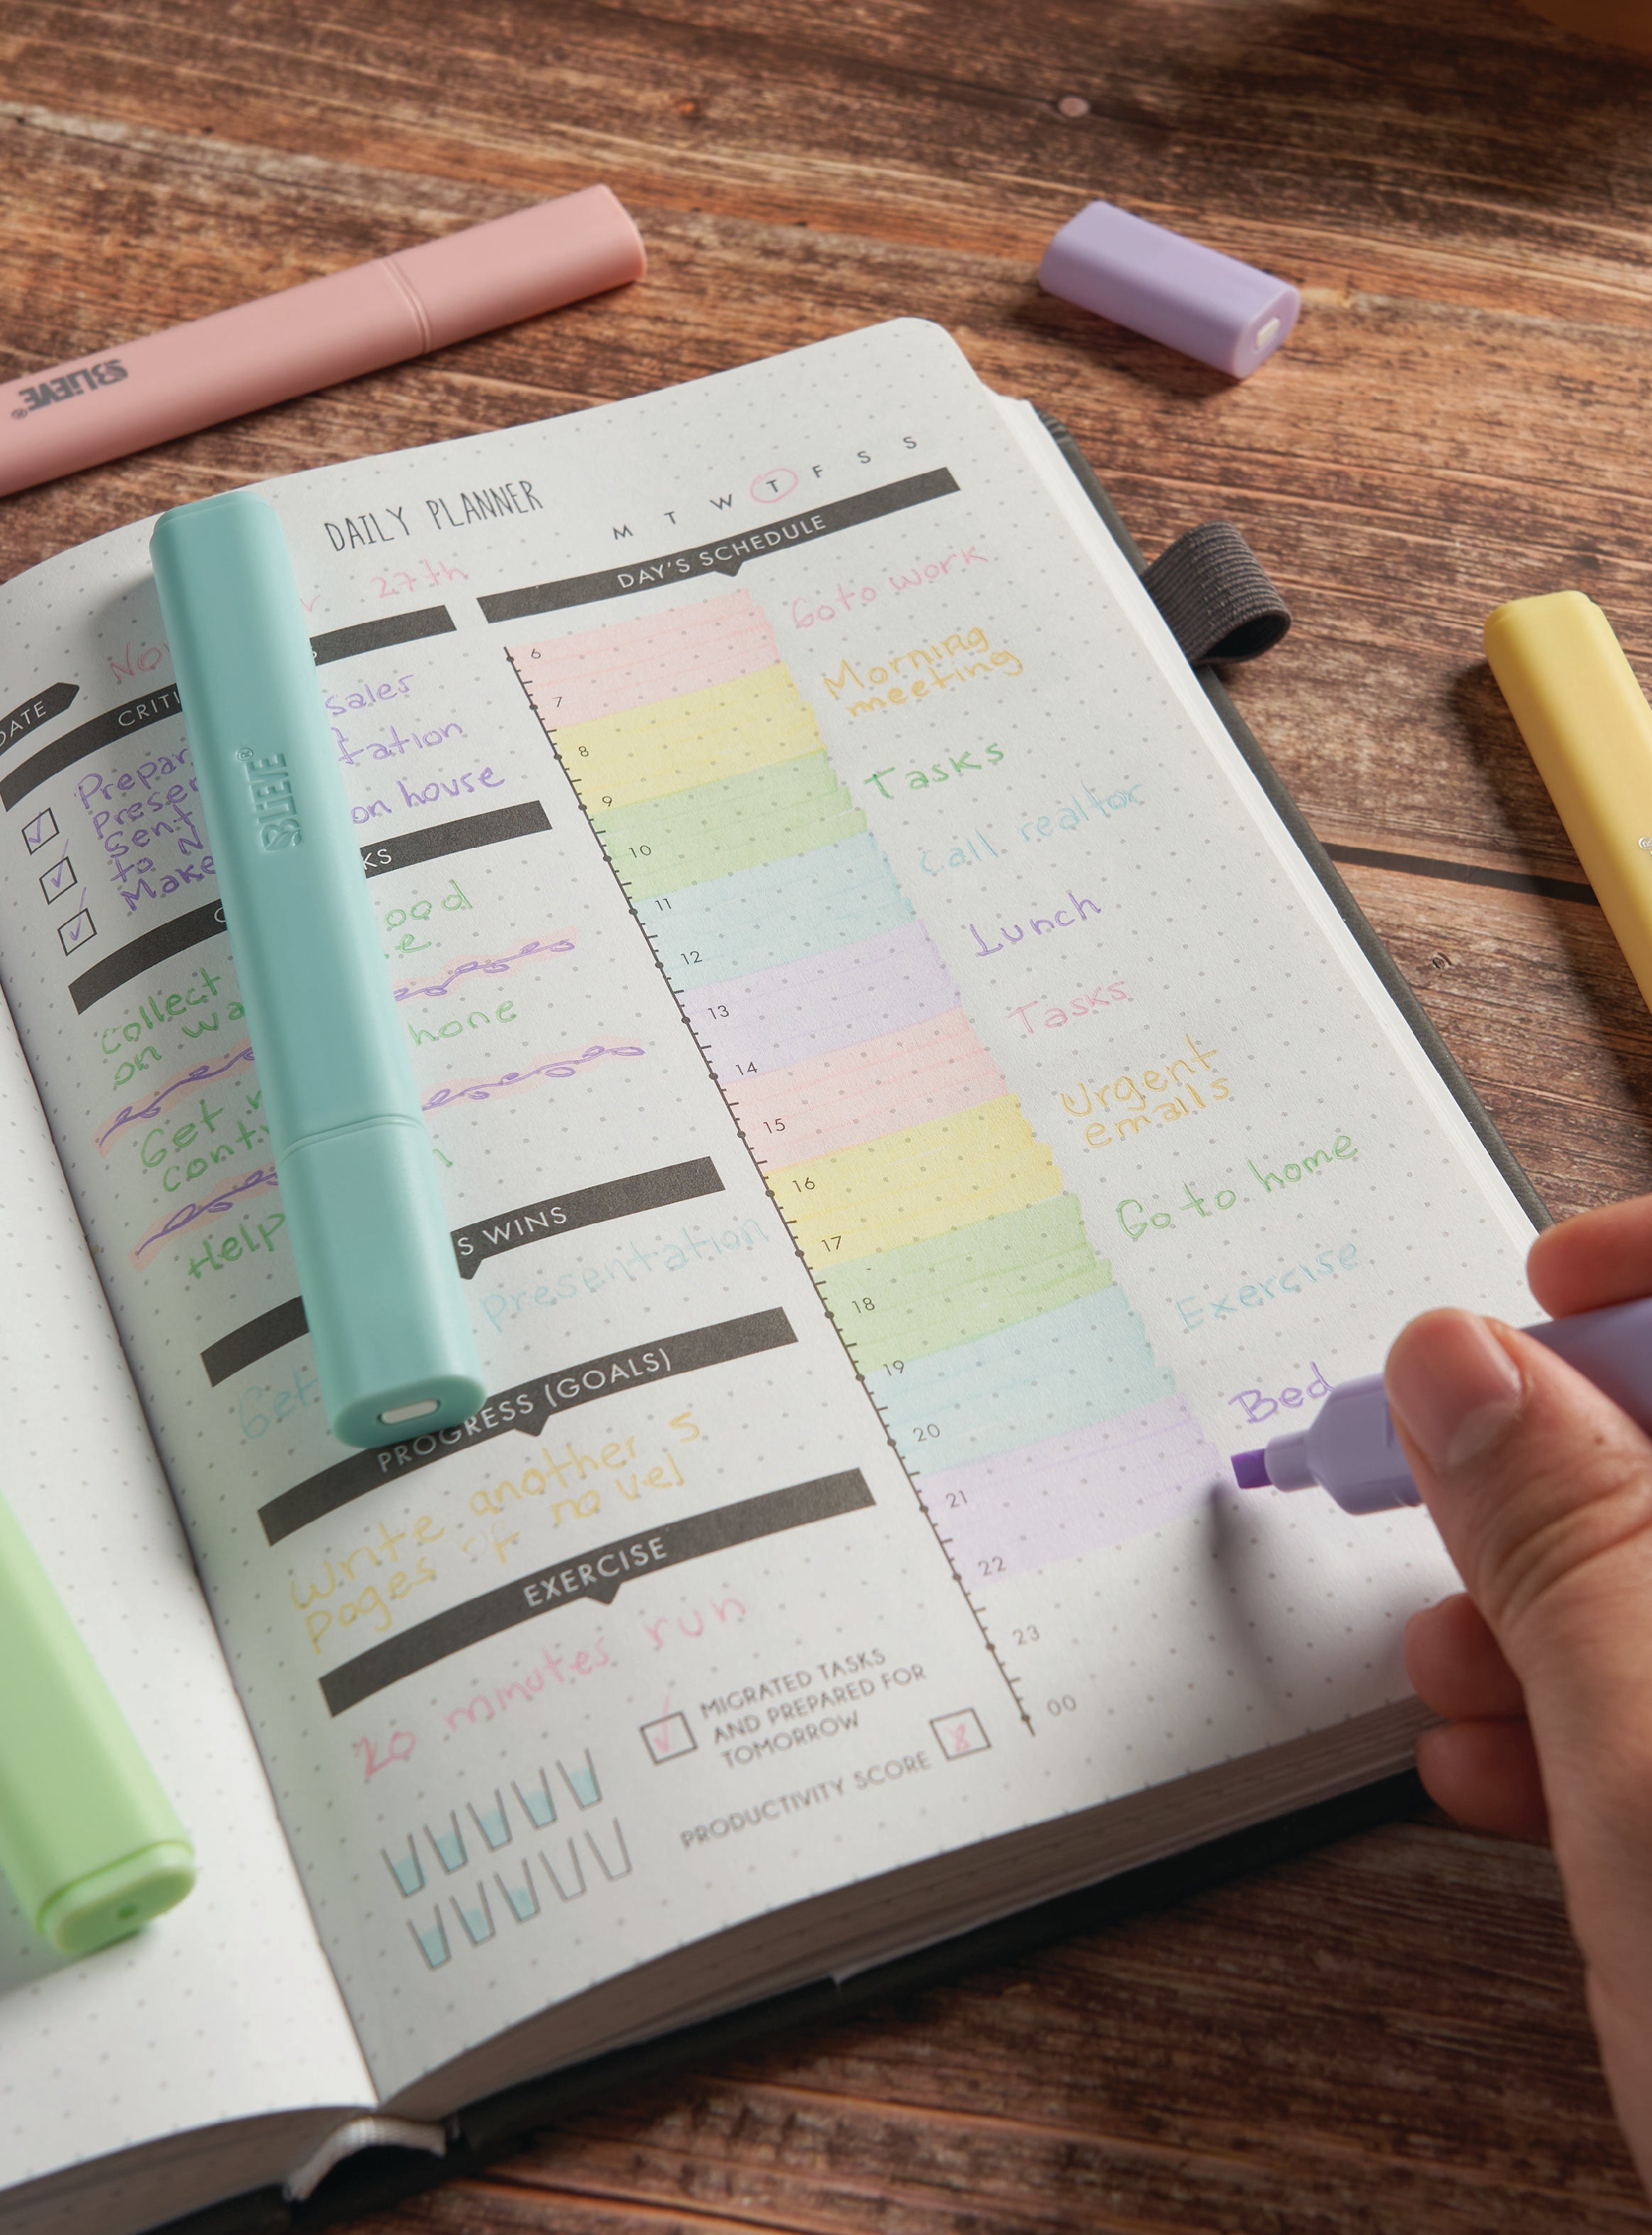 BLiEVE®
DAILY PLANNER
M T W T F S S
DATE
Nov 27th
CRITI
sales
Prepar
Presen tation
Sent on house
to N
Make
KS
ood
collect e
on wa
hone
Get
cont
Help
S WINS
Get presentation
PROGRESS (GOALS)
Write another 5
pages of novel
EXERCISE
20 minutes run
MIGRATED TASKS
AND PREPARED FOR
TOMORROW
PRODUCTIVITY SCORE 8
DAY'S SCHEDULE
Go to work
6
7
Morning
meeting
8
9
Tasks
10
Call realtor
11
12
Lunch
13
14
Tasks
15
Urgent
emails
16
17
Go to home
18
19
Exercise
20
Bed
21
22
23
00
BLiEVE®